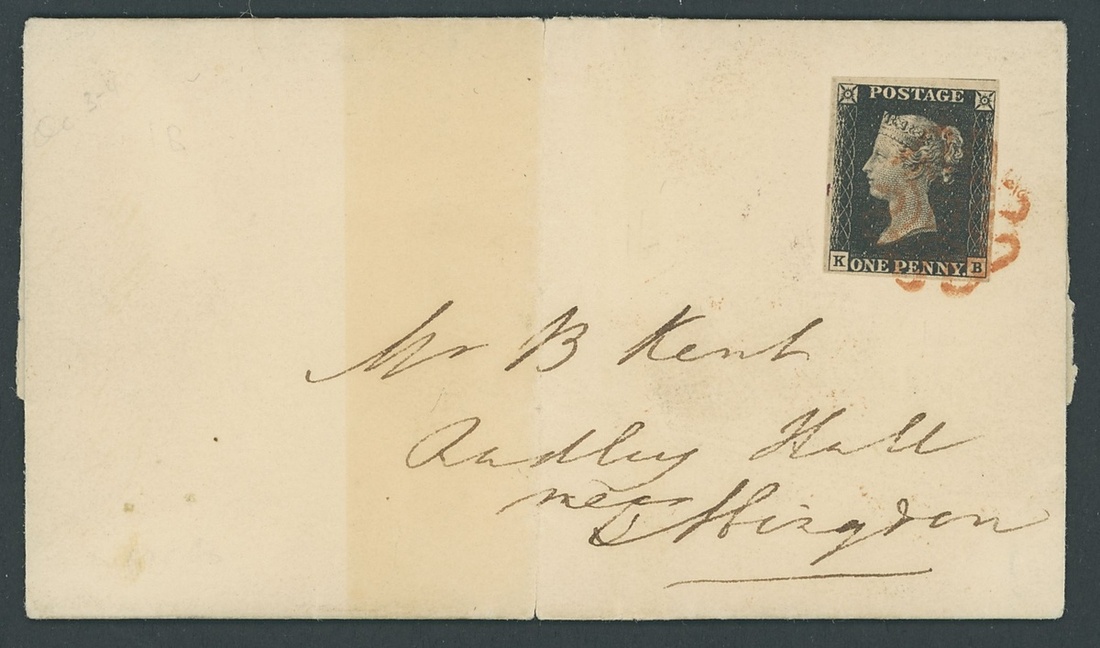 POSTAGE
K ONE PENNY. B
Mr B Kent
Radley Hall
near
Abingdon